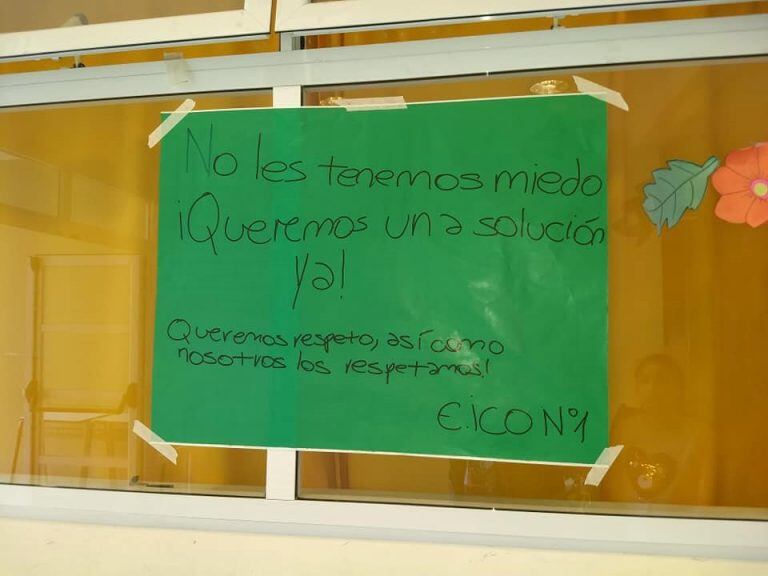 No les tenemos miedo
¡Queremos una solución
ya!
Queremos respeto, así como
nosotros los respetamos!
E.ICO Nº1